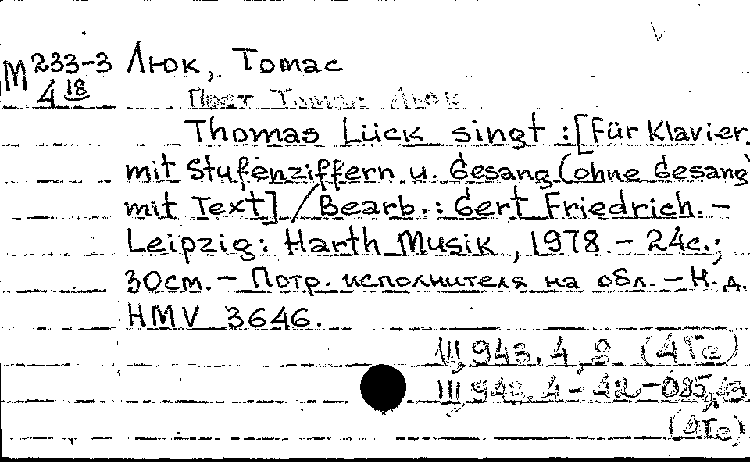 М 233-3 Люк, Томас
4 18 Поет Томас Люк
Thomas Lück singt : [Für Klavier
mit Stufenziffern u. Gesang (ohne Gesang
mit Text] / Bearb.: Gert Friedrich. –
Leipzig : Harth Musik, 1978. – 24с.;
30см. – Портр. исполнителя на обл. – Н. д.
HMV 3646.
III, 943. 4, 2. (4Ге)
III, 943. 4 – 42 –
(4Ге)